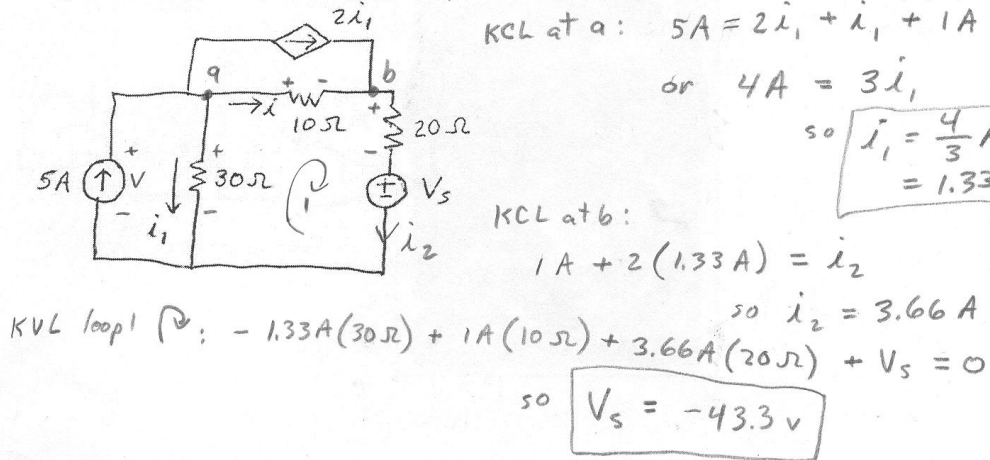 2i₁
a
b
+ -
→ i
10Ω
+
20Ω
-
5A
+
v
-
+
30Ω
-
i₁
1
±
Vs
i₂
KCL at a: 5A = 2i₁ + i₁ + 1A
or 4A = 3i₁
so i₁ = 4/3 A
= 1.33
KCL at b:
1A + 2(1.33A) = i₂
so i₂ = 3.66 A
KVL loop1 ↷: - 1.33A(30Ω) + 1A(10Ω) + 3.66A(20Ω) + Vs = 0
so Vs = -43.3 v